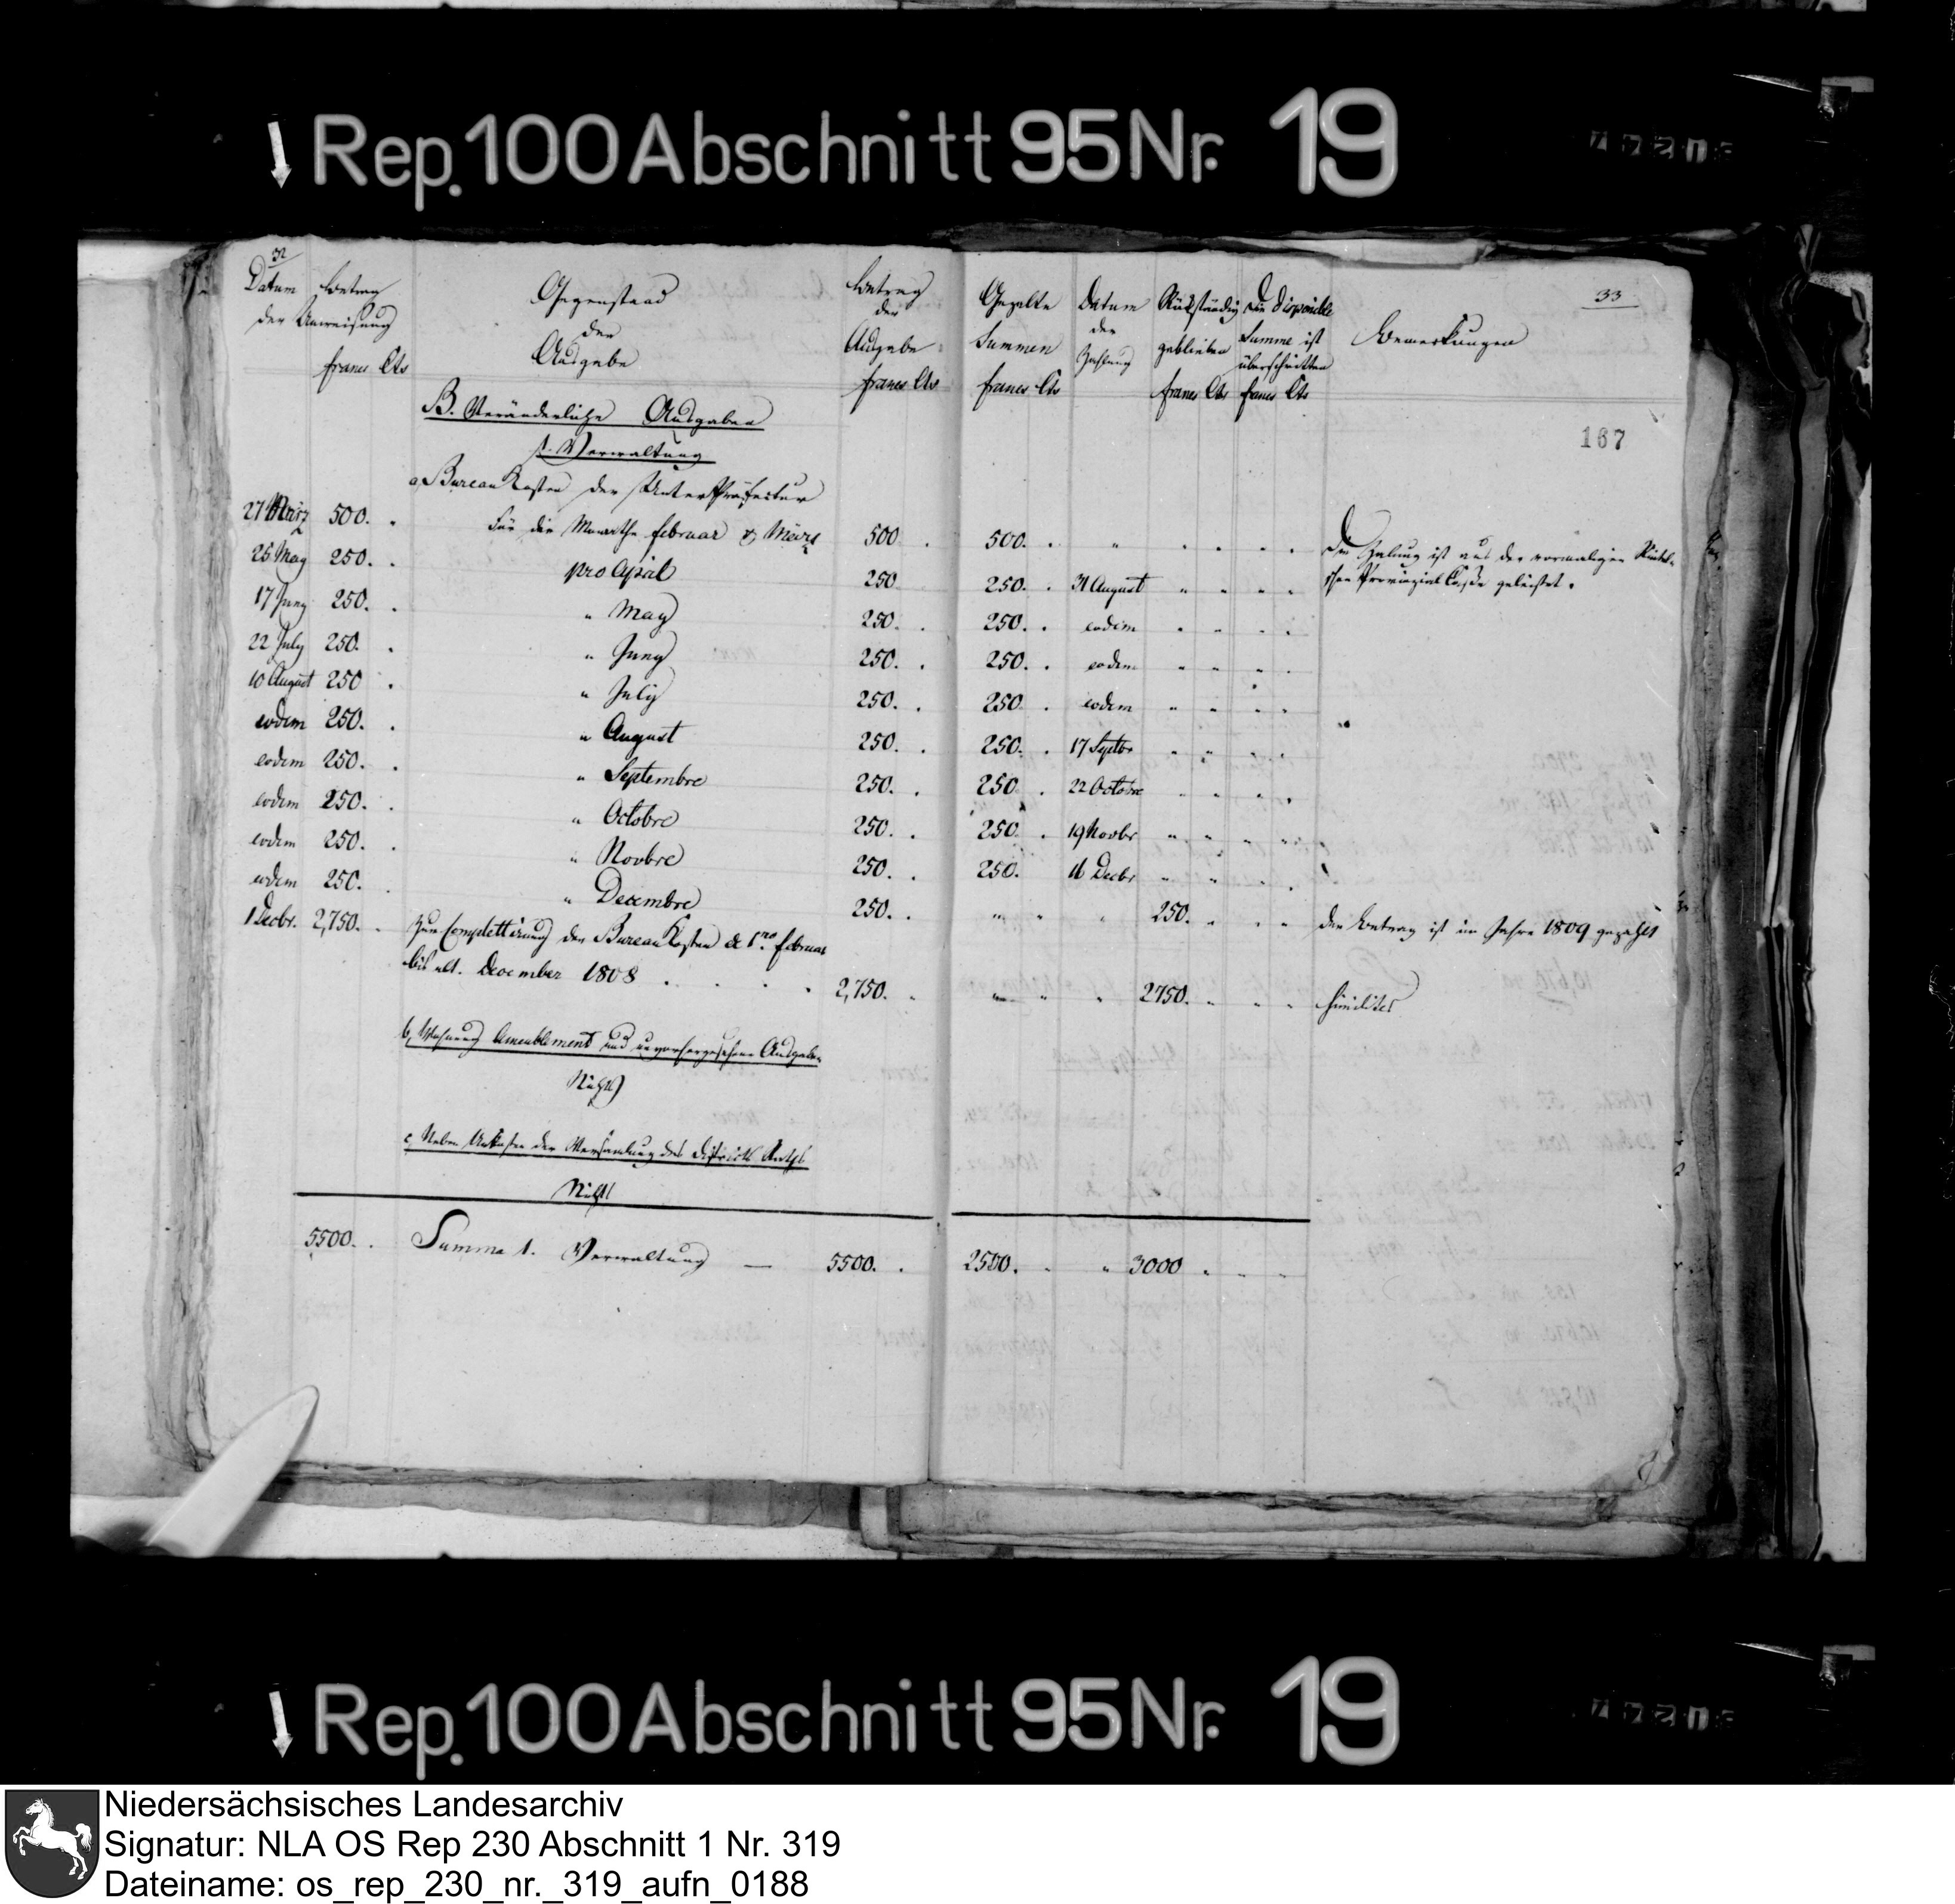 Rep. 100 Abschnitt 95 Nr. 19
32
Datum Betrag
der Anweisung
francs Cts
Gegenstand
der
Ausgabe
Betrag
der
Ausgabe
francs Cts
Gezalte
Summen
francs Cts
Datum
der
Zahlung
Rückständig
geblieben
francs Cts
Die disponible
Summe ist
überschritten
francs Cts
Bemerkungen
33
167
B. Veränderliche Ausgaben
1. Verwaltung
a, Bureau Kosten der Unter Präfectur
27 März 500. . Für die Monathe februar & März 500 . 500. . " . . . . Die Zalung ist aus der vormaligen
schen Provinzial Casse geleistet.
25 May 250. . pro April 250 250. . 31 August " " " .
17 Juny 250. . " May 250. . 250. . eodem " " . .
22 July 250. . " Juny 250. . 250. . eodem " " " .
10 August 250 . " July 250. . 250. . eodem " " . .
eodem 250. . " August 250. . 250. . 17 Septbr " " . .
eodem 250. . " Septembre 250. . 250. . 22 Octobre " " " .
eodem 250. . " Octobre 250. . 250. . 19 Novbr " " " .
eodem 250. . " Novbre 250. . 250. 16 Decbr " " " .
eodem 250. . " Decembre 250. . " " " 250. " . . der Betrag ist im Jahre 1809 gezahlt
1 Decbr. 2,750. . Zur Complettirung der Bureau Kosten de 1ro februar
bis ult. December 1808 . . . . 2,750. . " " " 2750. " . . similiter
b, Wohnung Ameublement und unvorhergesehene Ausgaben
Nichts
c, Neben Unkosten der Versamlung des Districts Raths
Nichts
5500. . Summa 1. Verwaltung — 5500. . 2500. . " 3000 . . .
Rep. 100 Abschnitt 95 Nr. 19
Niedersächsisches Landesarchiv
Signatur: NLA OS Rep 230 Abschnitt 1 Nr. 319
Dateiname: os_rep_230_nr._319_aufn_0188